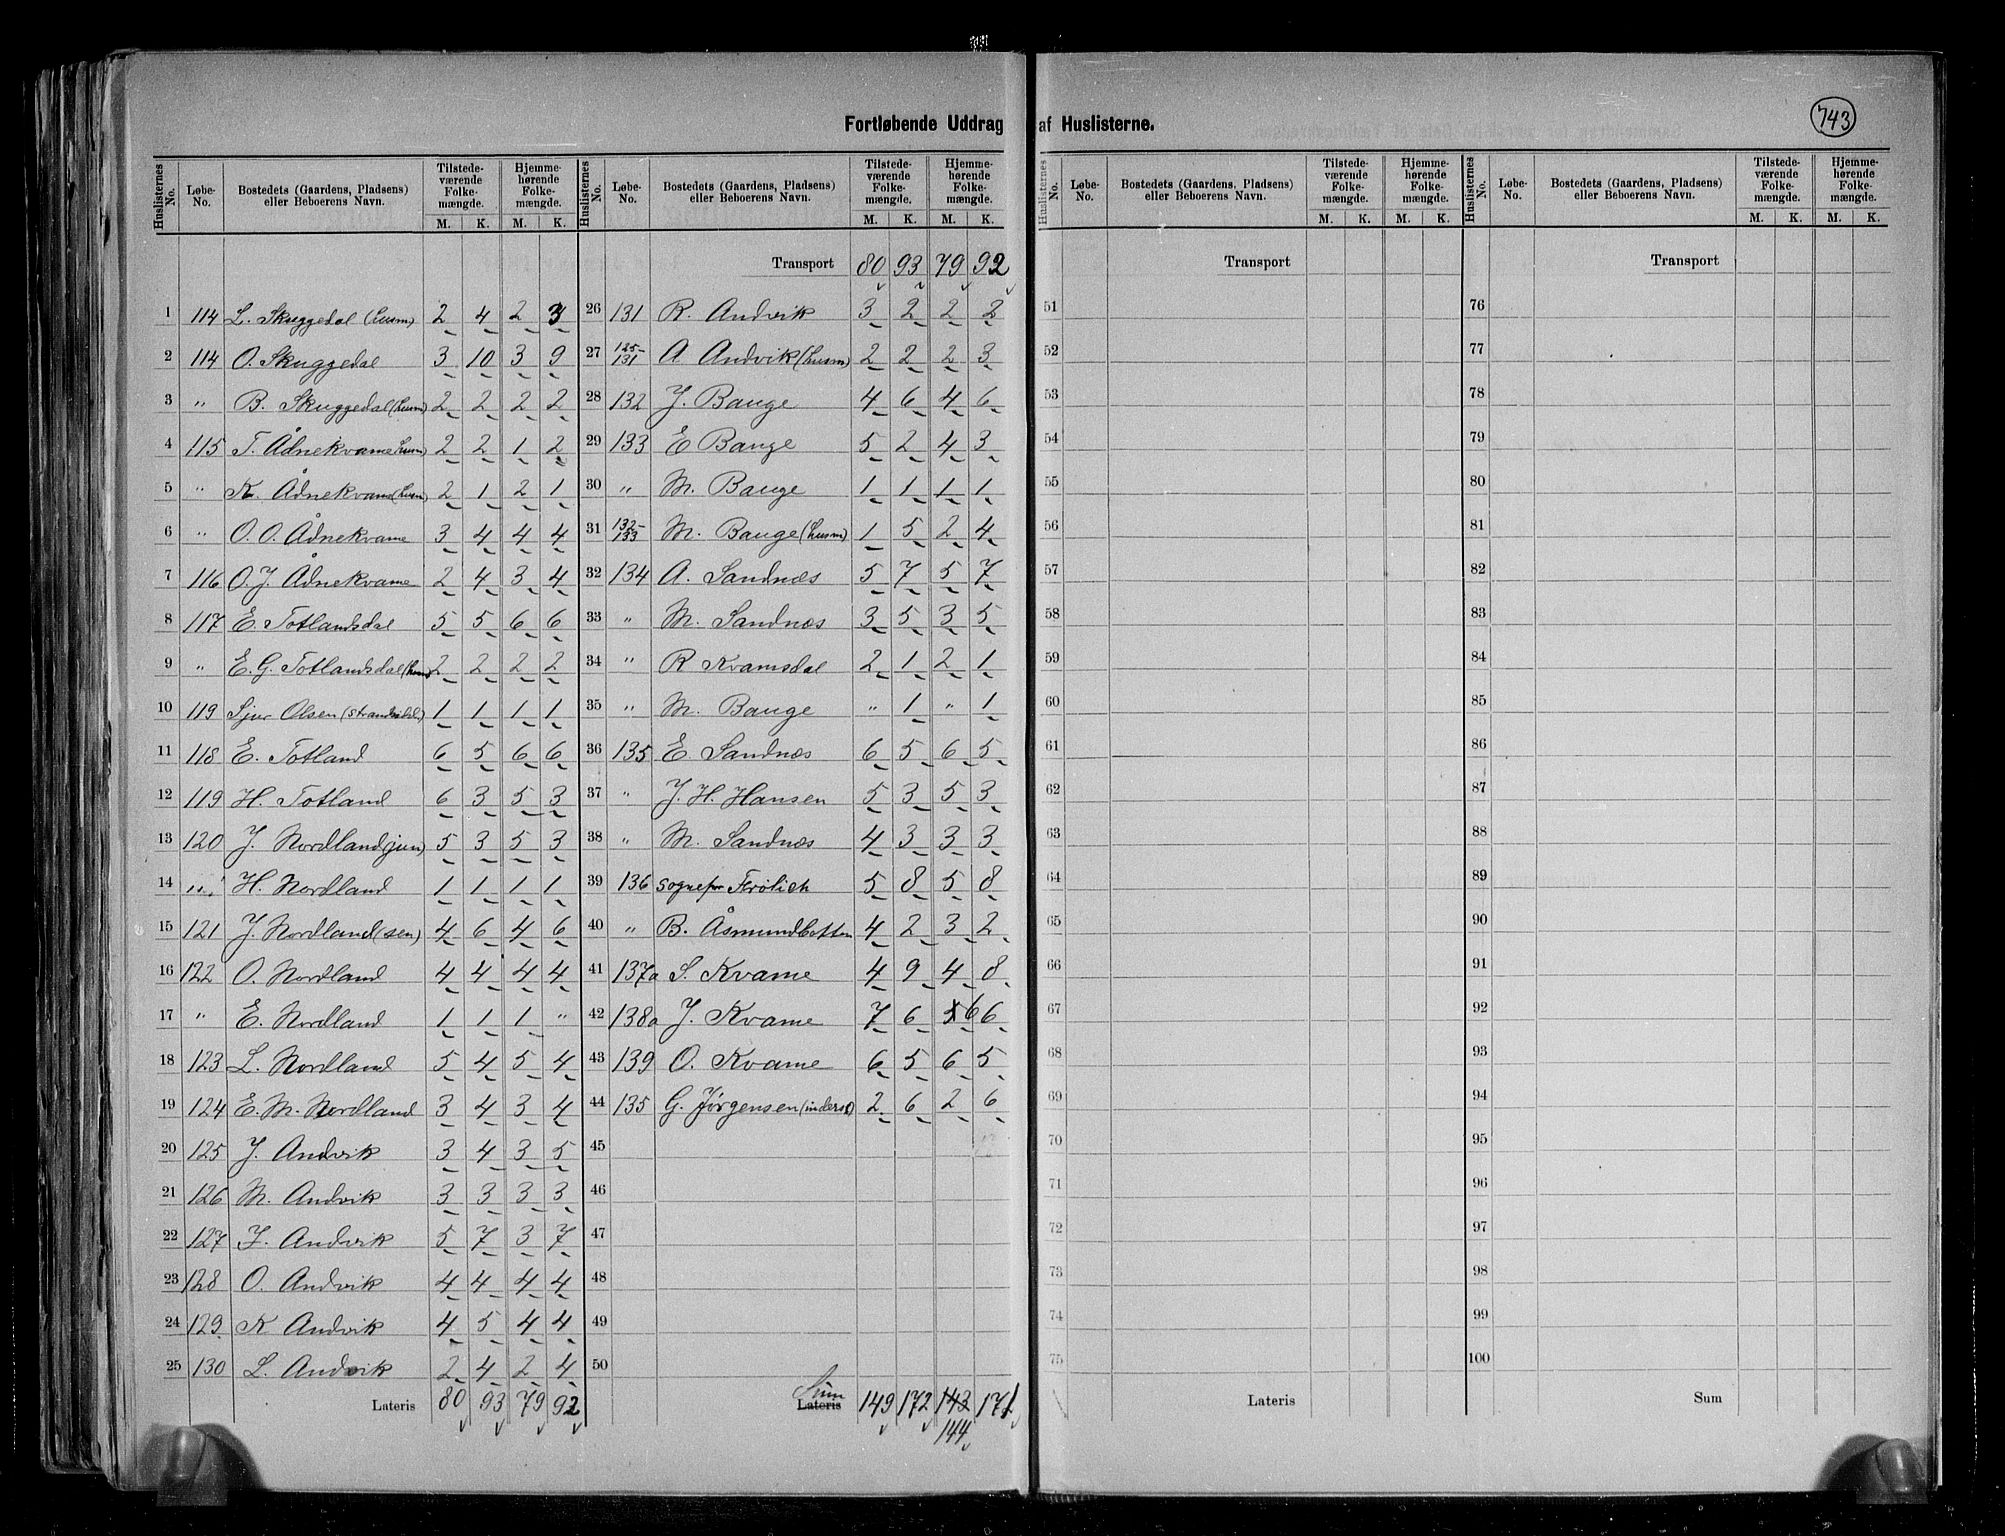 743
Fortløbende Uddrag af Huslisterne.
Huslisternes No. | Løbe-No. | Bostedets (Gaardens, Pladsens) eller Beboerens Navn. | Tilstedeværende Folkemængde. M. K. | Hjemmehørende Folkemængde. M. K.
1 114 L. Skuggedal (husm) 2 4 2 3
2 114 O. Skuggedal 3 10 3 9
3 " B. Skuggedal (husm) 2 2 2 2
4 115 T. Ådnekvame husm) 2 2 1 2
5 " K. Ådnekvam (husm) 2 1 2 1
6 " O. O. Ådnekvame 3 4 4 4
7 116 O. J. Ådnekvame 2 4 3 4
8 117 E. Totlandsdal 5 5 6 6
9 " E. G. Totlandsdal (husm) 2 2 2 2
10 119 Sjur Olsen 1 1 1 1
11 118 E. Totland 6 5 6 6
12 119 H. Totland 6 3 5 3
13 120 J. Nordland (jun) 5 3 5 3
14 " H. Nordland 1 1 1 1
15 121 J. Nordland (sen) 4 6 4 6
16 122 O. Nordland 4 4 4 4
17 " E. Nordland 1 1 1 "
18 123 L. Nordland 5 4 5 4
19 124 E. M. Nordland 3 4 3 4
20 125 J. Andvik 3 4 3 5
21 126 M. Andvik 3 3 3 3
22 127 I. Andvik 5 7 3 7
23 128 O. Andvik 4 4 4 4
24 129 K Andvik 4 5 4 4
25 130 L. Andvik 2 4 2 4
Lateris 80 93 79 92
Huslisternes No. | Løbe-No. | Bostedets (Gaardens, Pladsens) eller Beboerens Navn. | Tilstedeværende Folkemængde. M. K. | Hjemmehørende Folkemængde. M. K.
Transport 80 93 79 92
26 131 R. Andvik 3 2 2 2
27 125-131 A Andvik (husm) 2 2 2 3
28 132 J. Bauge 4 6 4 6
29 133 E Bauge 5 2 4 3
30 " M. Bauge 1 1 1 1
31 132-133 M. Bauge (husm) 1 5 2 4
32 134 A. Sandnæs 5 7 5 7
33 " M. Sandnæs 3 5 3 5
34 " R Kvamsdal 2 1 2 1
35 " M. Bauge " 1 " 1
36 135 E. Sandnæs 6 5 6 5
37 " J. H. Hansen 5 3 5 3
38 " M. Sandnæs 4 3 3 3
39 136 Sognepr Frølich 5 8 5 8
40 " B. Åsmundbotten 4 2 3 2
41 137a S. Kvame 4 9 4 8
42 138a J. Kvame 7 6 5 6 6
43 139 O. Kvame 6 5 6 5
44 135 G. Jørgensen (inderst) 2 6 2 6
45
46
47
48
49
50
Sum Lateris 149 172 143 171
144
Huslisternes No. | Løbe-No. | Bostedets (Gaardens, Pladsens) eller Beboerens Navn. | Tilstedeværende Folkemængde. M. K. | Hjemmehørende Folkemængde. M. K.
Transport
51
52
53
54
55
56
57
58
59
60
61
62
63
64
65
66
67
68
69
70
71
72
73
74
75
Lateris
Huslisternes No. | Løbe-No. | Bostedets (Gaardens, Pladsens) eller Beboerens Navn. | Tilstedeværende Folkemængde. M. K. | Hjemmehørende Folkemængde. M. K.
Transport
76
77
78
79
80
81
82
83
84
85
86
87
88
89
90
91
92
93
94
95
96
97
98
99
100
Sum